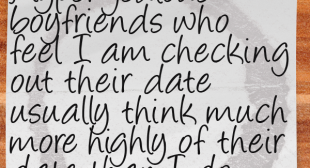 boyfriends who
feel I am checking
out their date
usually think much
more highly of their
date than I do